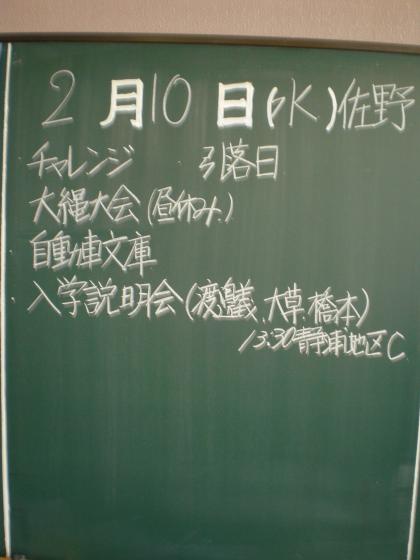 2月10日(水)佐野
チャレンジ 引落日
大縄大会(昼休み)
自動車文庫
入学説明会(渡邉議、大草、橋本)
13:30静浦地区C